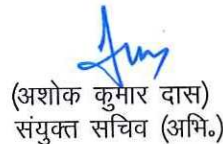 (अशोक कुमार दास)
संयुक्त सचिव (अभि.)